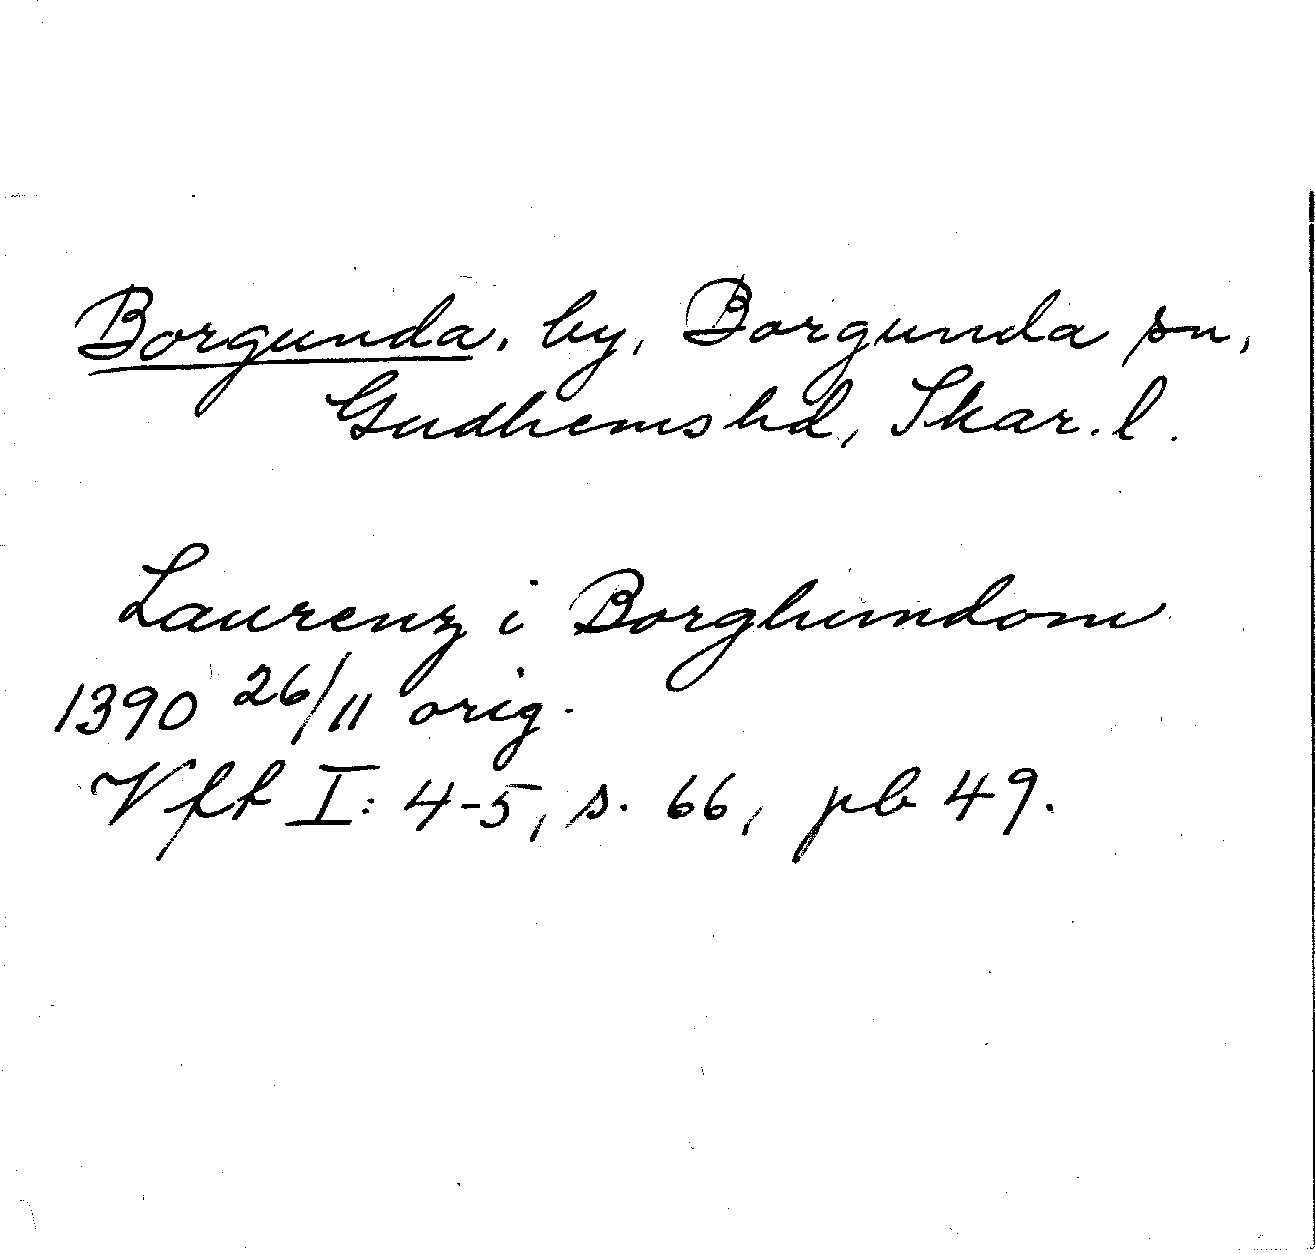 Borgunda, by, Borgunda sn,
Gudhems hd, Skar. l.
Laurenz i Borghundom
1390 26/11 orig.
Vfft I: 4-5, s. 66, pb 49.